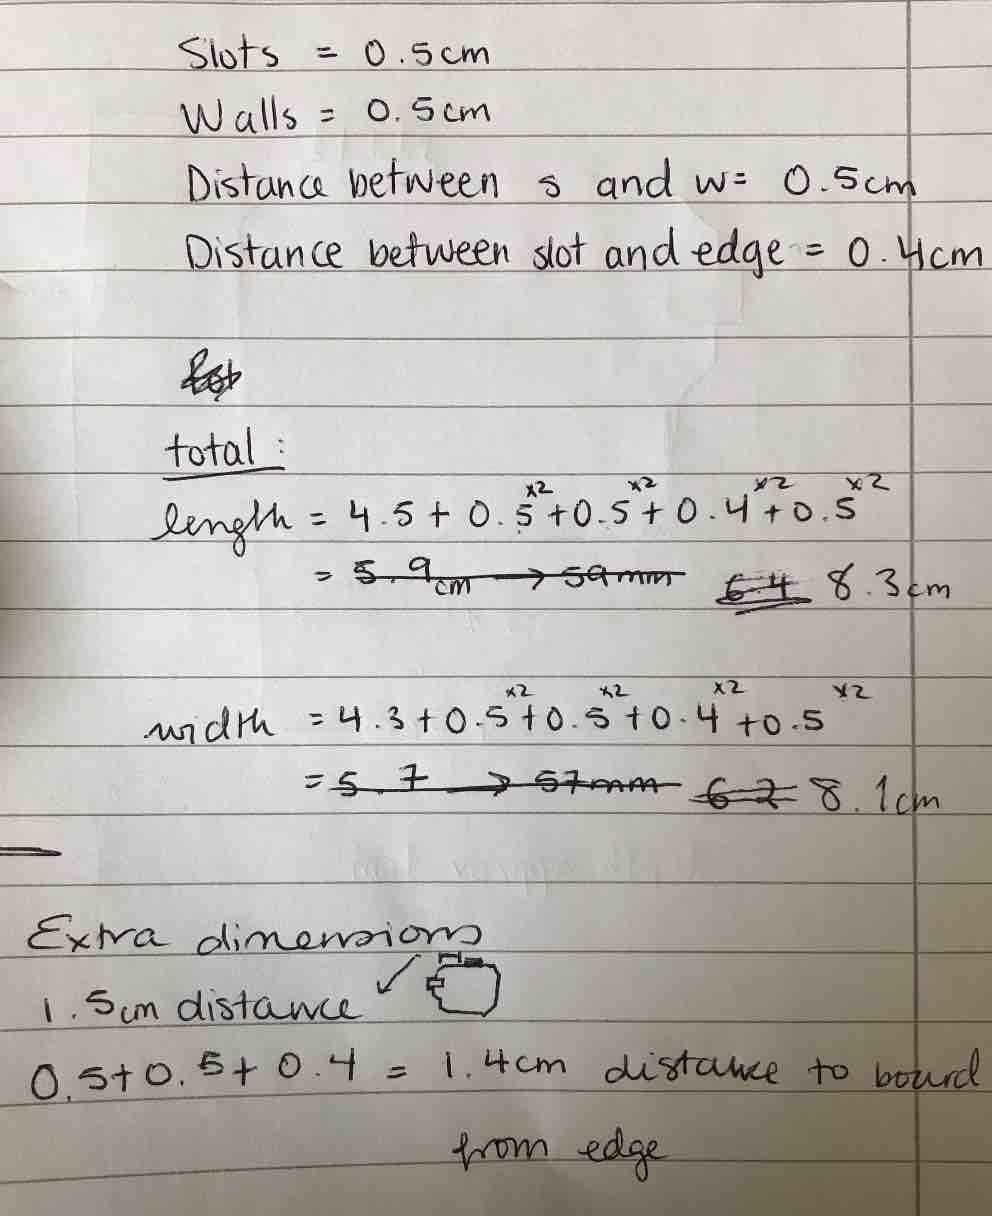 Slots = 0.5cm
Walls = 0.5cm
Distance between s and w= 0.5cm
Distance between slot and edge = 0.4cm
total:
length = 4.5 + 0.5 x2 + 0.5 x2 + 0.4 x2 + 0.5 x2
= 5.9cm → 59mm 64 8.3cm
width = 4.3 + 0.5 x2 + 0.5 x2 + 0.4 x2 + 0.5 x2
= 5.7 → 57mm 62 8.1cm
Extra dimensions
1.5cm distance
0.5+0.5+0.4 = 1.4cm distance to bourd
from edge